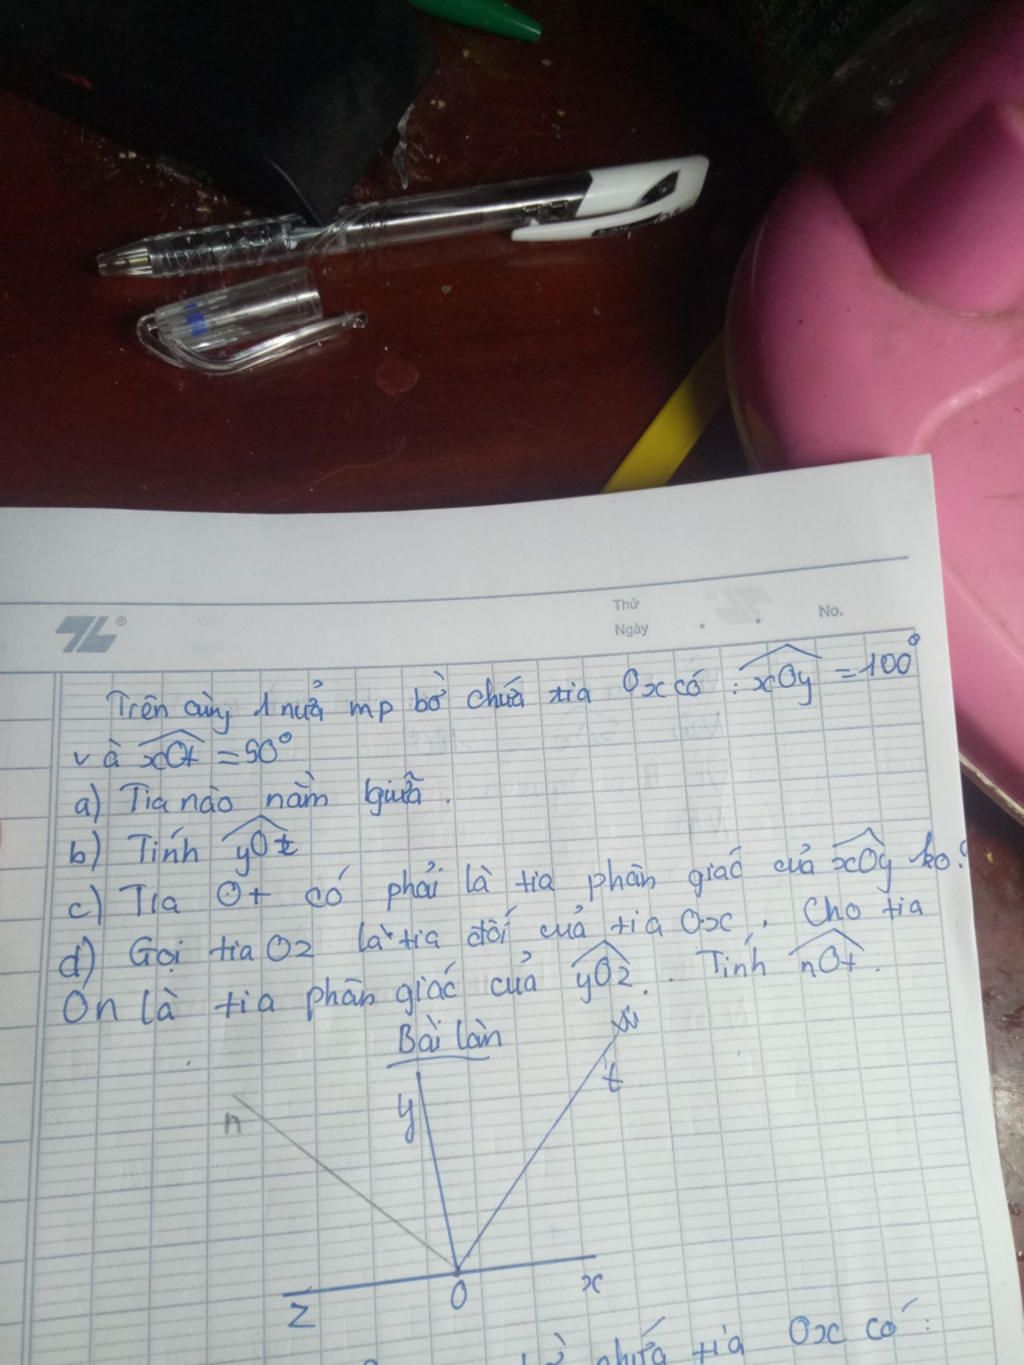 Thứ
Ngày
No.
Trên cùng 1 nửa mp bờ chứa tia Ox có : xOy = 100°
và xOt = 50°
a) Tia nào nằm giữa.
b) Tính yOt
c) Tia Ot có phải là tia phân giác của xOy ko?
d) Gọi tia Oz là tia đối của tia Ox. Cho tia
On là tia phân giác của yOz. Tính nOt.
Bài làm
n
y
t
z
O
x
chứa tia Ox có :